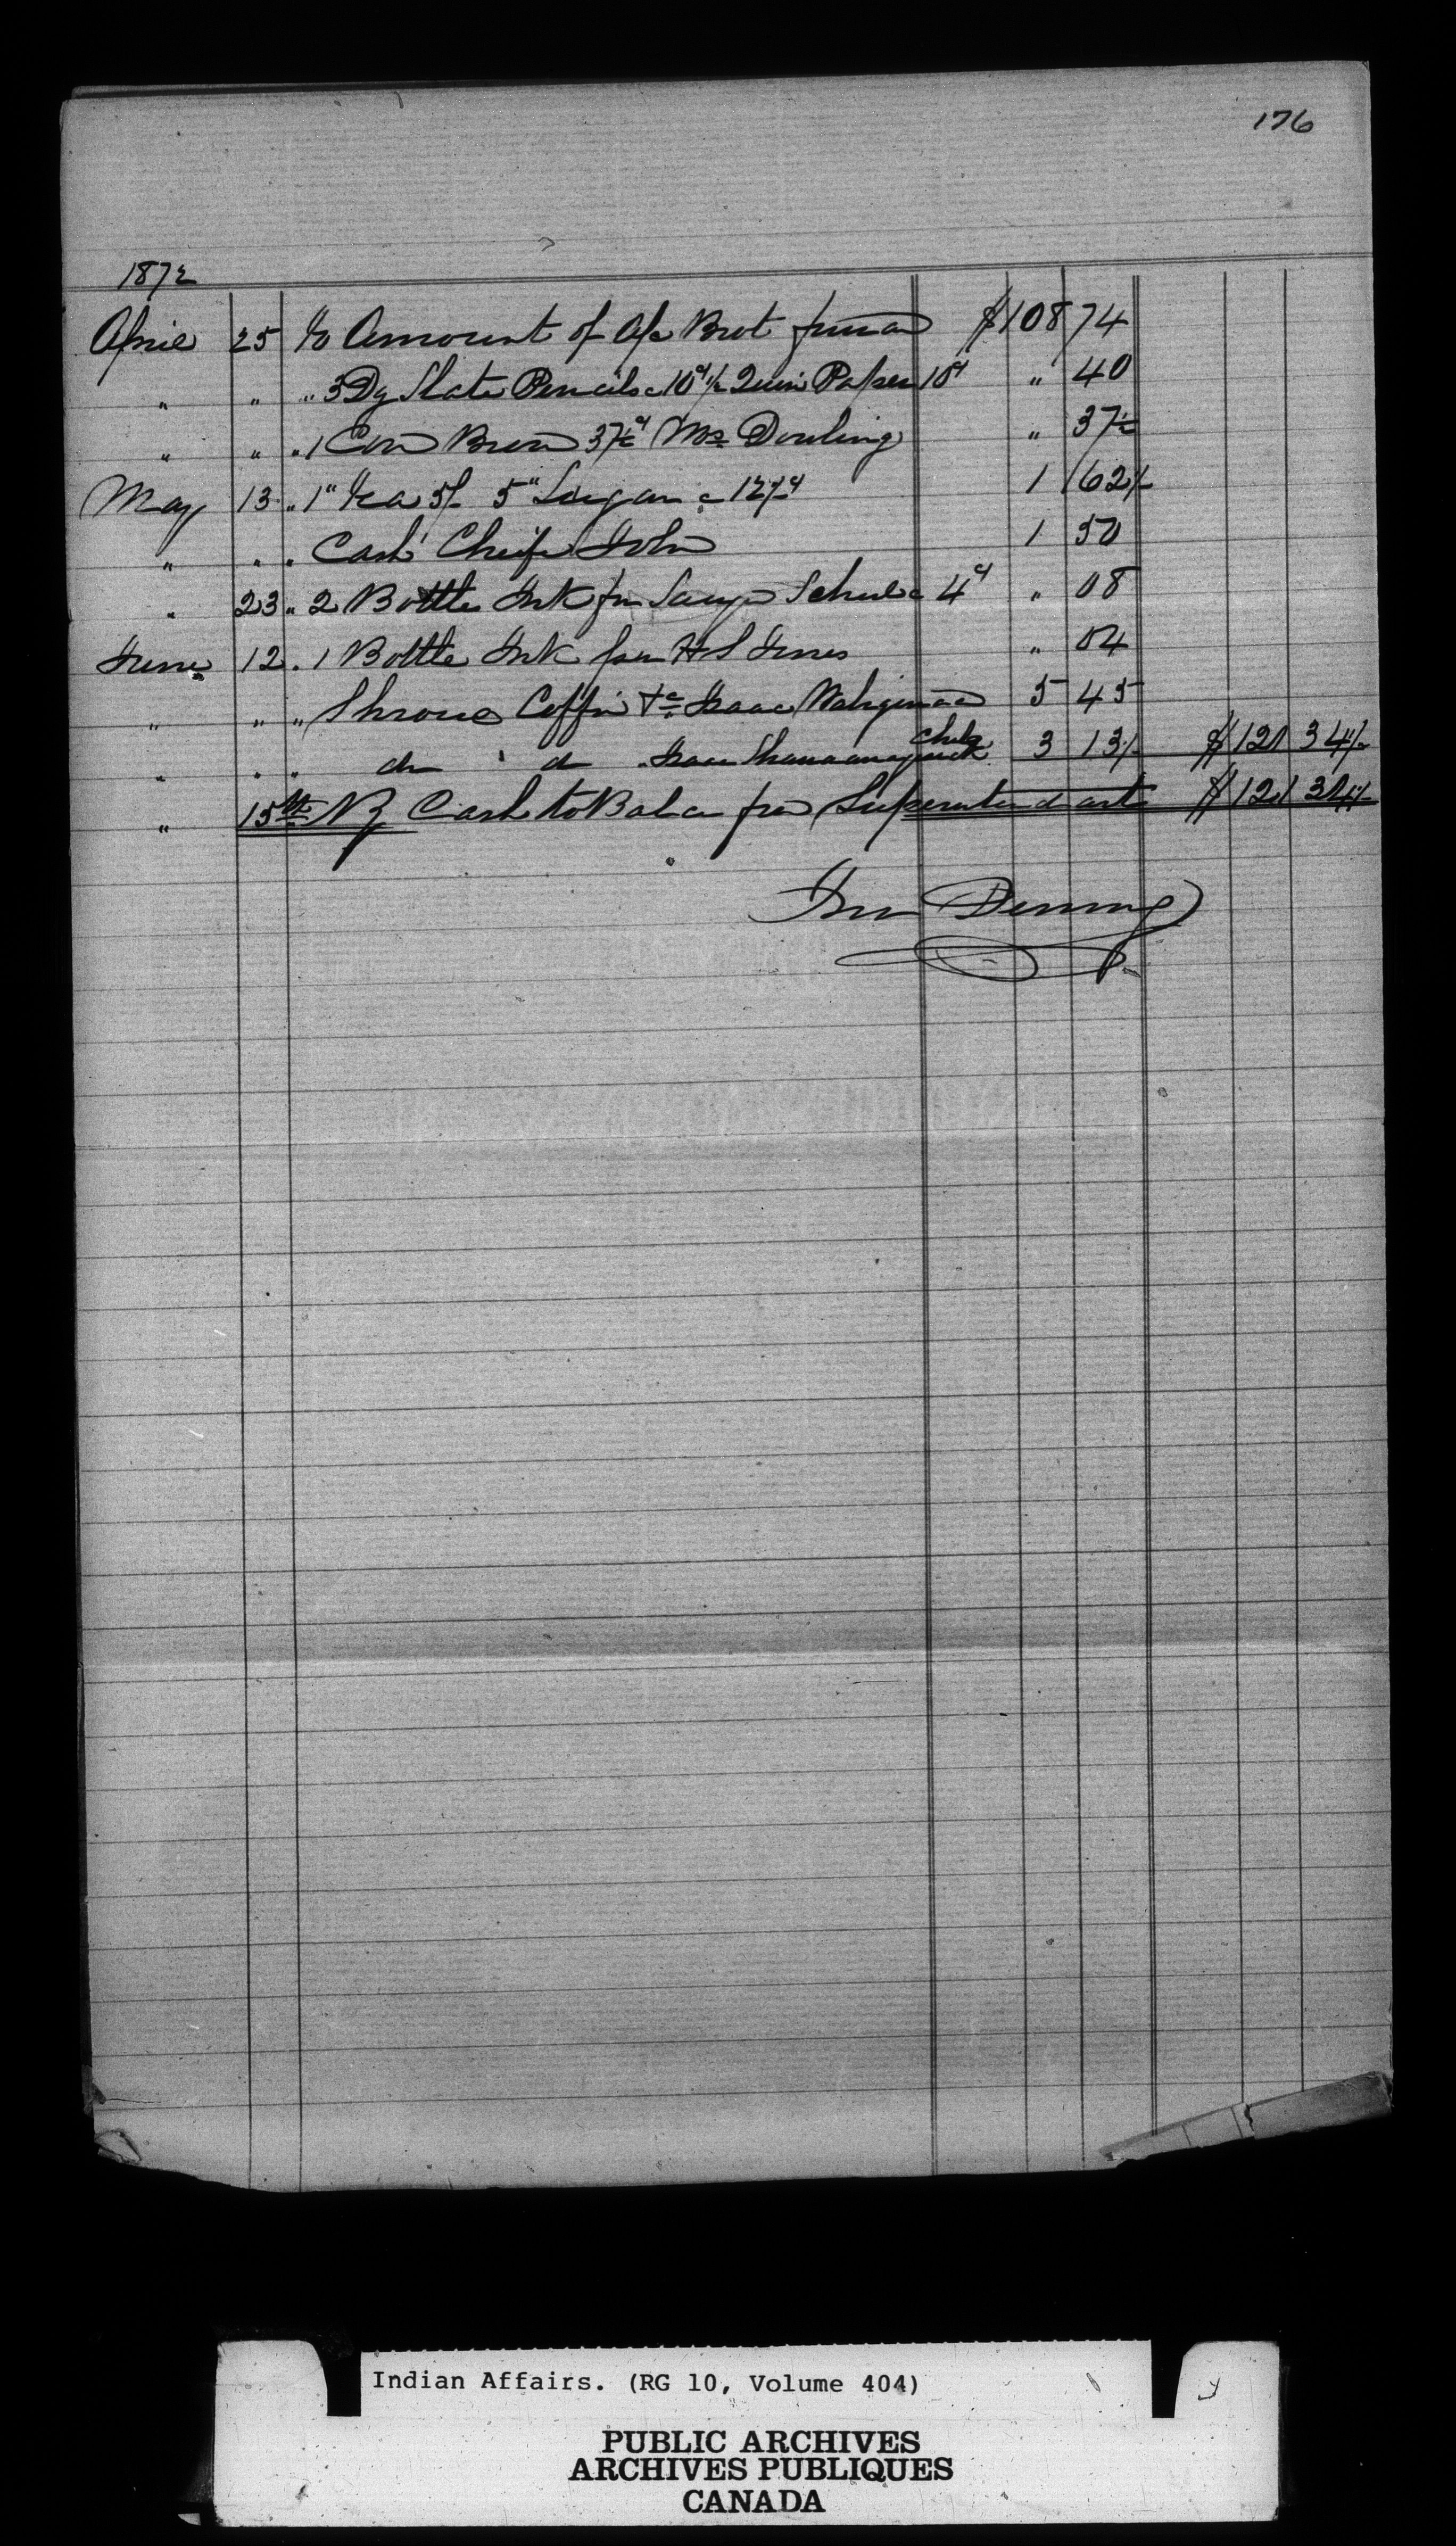 176
1872
April 25 To Amount of A/c Brot forward $108 74
" " " 3 Dz Slate Pencils @ 10d 1/2 Quire Paper 10d " 40
" " " 1 Corn Broom 37½d Mrs Dowling " 37½
May 13 " 1" Tea 5/- 5" Sugar @ 12½d 1 62½
" " " Cash Cheif John 1 50
" 23 " 2 Bottle Ink for School @ 4d " 08
June 12 " 1 Bottle Ink for H S Jones " 04
" " " Shroud Coffin &c Isaac 5 45
" " " do " do Isaac chilg 3 13½ $121 34½
" 15th By Cash to Balance from Superintendent $121 34½
Jno Denny
Indian Affairs. (RG 10, Volume 404)
PUBLIC ARCHIVES
ARCHIVES PUBLIQUES
CANADA